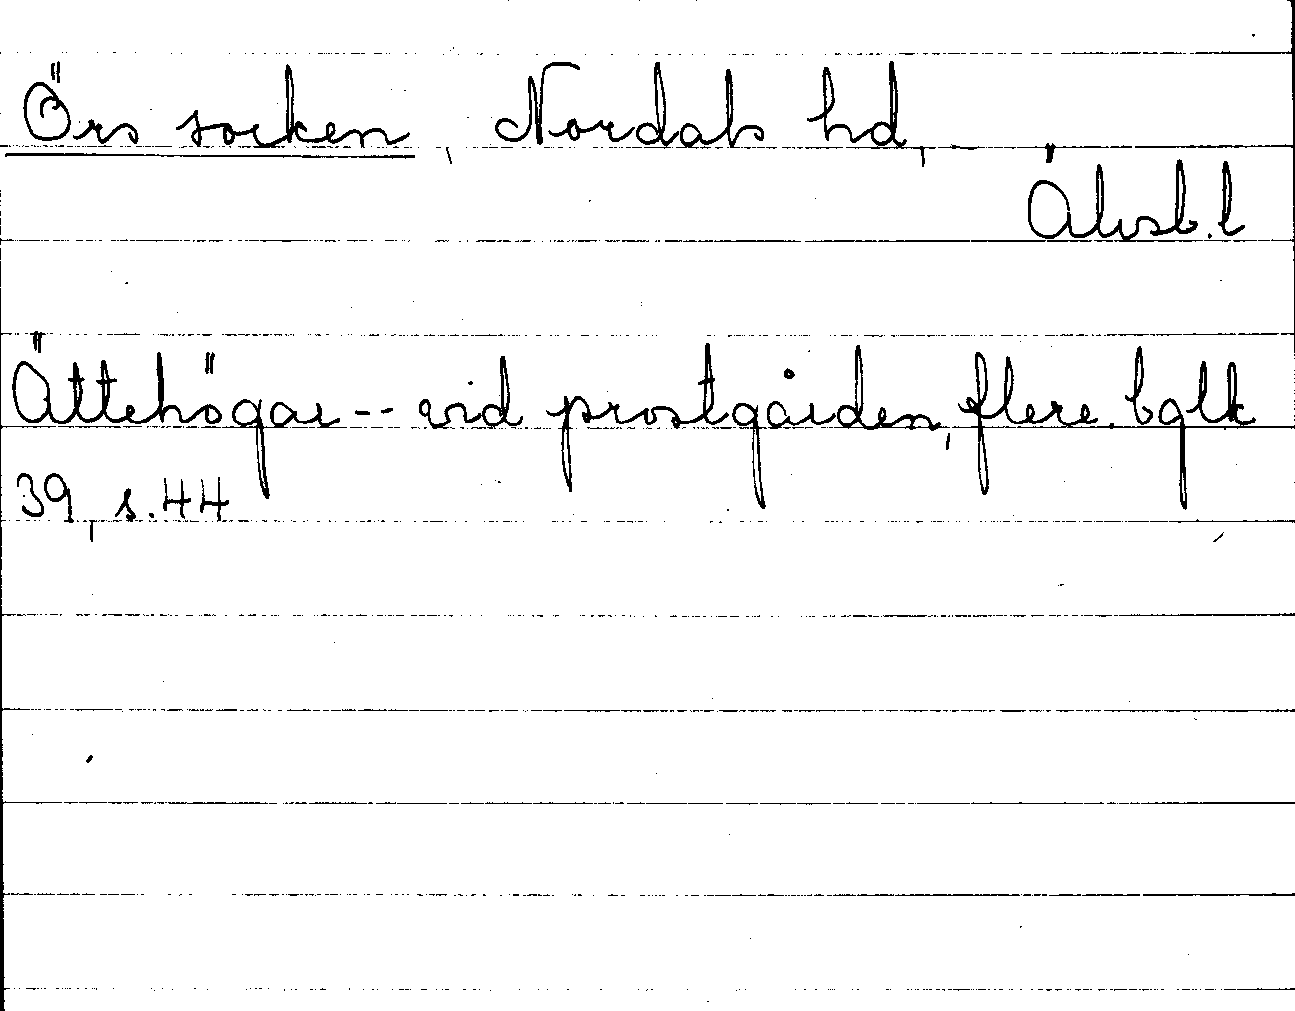 Örs socken, Nordals hd,
Älvsb.l
Ättehögar -- vid prostgården, flere. bglk
39, s. 44